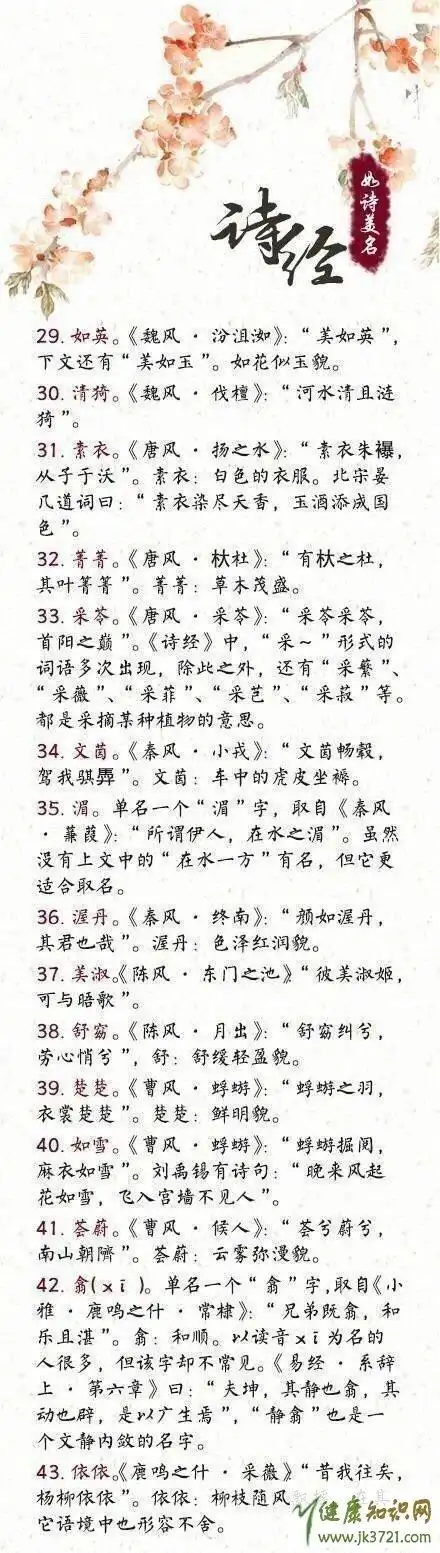 诗经
如诗美名
29. 如英。《魏风·汾沮洳》：“美如英”，
下文还有“美如玉”。如花似玉貌。
30. 清猗。《魏风·伐檀》：“河水清且涟
猗”。
31. 素衣。《唐风·扬之水》：“素衣朱襮，
从子于沃”。素衣：白色的衣服。北宋晏
几道词曰：“素衣染尽天香，玉酒添成国
色”。
32. 菁菁。《唐风·杕杜》：“有杕之杜，
其叶菁菁”。菁菁：草木茂盛。
33. 采苓。《唐风·采苓》：“采苓采苓，
首阳之巅”。《诗经》中，“采~”形式的
词语多次出现，除此之外，还有“采蘩”、
“采薇”、“采菲”、“采芑”、“采菽”等。
都是采摘某种植物的意思。
34. 文茵。《秦风·小戎》：“文茵畅毂，
驾我骐馵”。文茵：车中的虎皮坐褥。
35. 湄。单名一个“湄”字，取自《秦风
·蒹葭》：“所谓伊人，在水之湄”。虽然
没有上文中的“在水一方”有名，但它更
适合取名。
36. 渥丹。《秦风·终南》：“颜如渥丹，
其君也哉”。渥丹：色泽红润貌。
37. 美淑。《陈风·东门之池》“彼美淑姬，
可与晤歌”。
38. 舒窈。《陈风·月出》：“舒窈纠兮，
劳心悄兮”，舒：舒缓轻盈貌。
39. 楚楚。《曹风·蜉蝣》：“蜉蝣之羽，
衣裳楚楚”。楚楚：鲜明貌。
40. 如雪。《曹风·蜉蝣》：“蜉蝣掘阅，
麻衣如雪”。刘禹锡有诗句：“晚来风起
花如雪，飞入宫墙不见人”。
41. 荟蔚。《曹风·候人》：“荟兮蔚兮，
南山朝隮”。荟蔚：云雾弥漫貌。
42. 翕(xī)。单名一个“翕”字，取自《小
雅·鹿鸣之什·常棣》：“兄弟既翕，和
乐且湛”。翕：和顺。以读音xī为名的
人很多，但该字却不常见。《易经·系辞
上·第六章》曰：“夫坤，其静也翕，其
动也辟，是以广生焉”，“静翕”也是一
个文静内敛的名字。
43. 依依。《鹿鸣之什·采薇》“昔我往矣，
杨柳依依”。依依：柳枝随风
它语境中也形容不舍。
健康知识网
www.jk3721.com